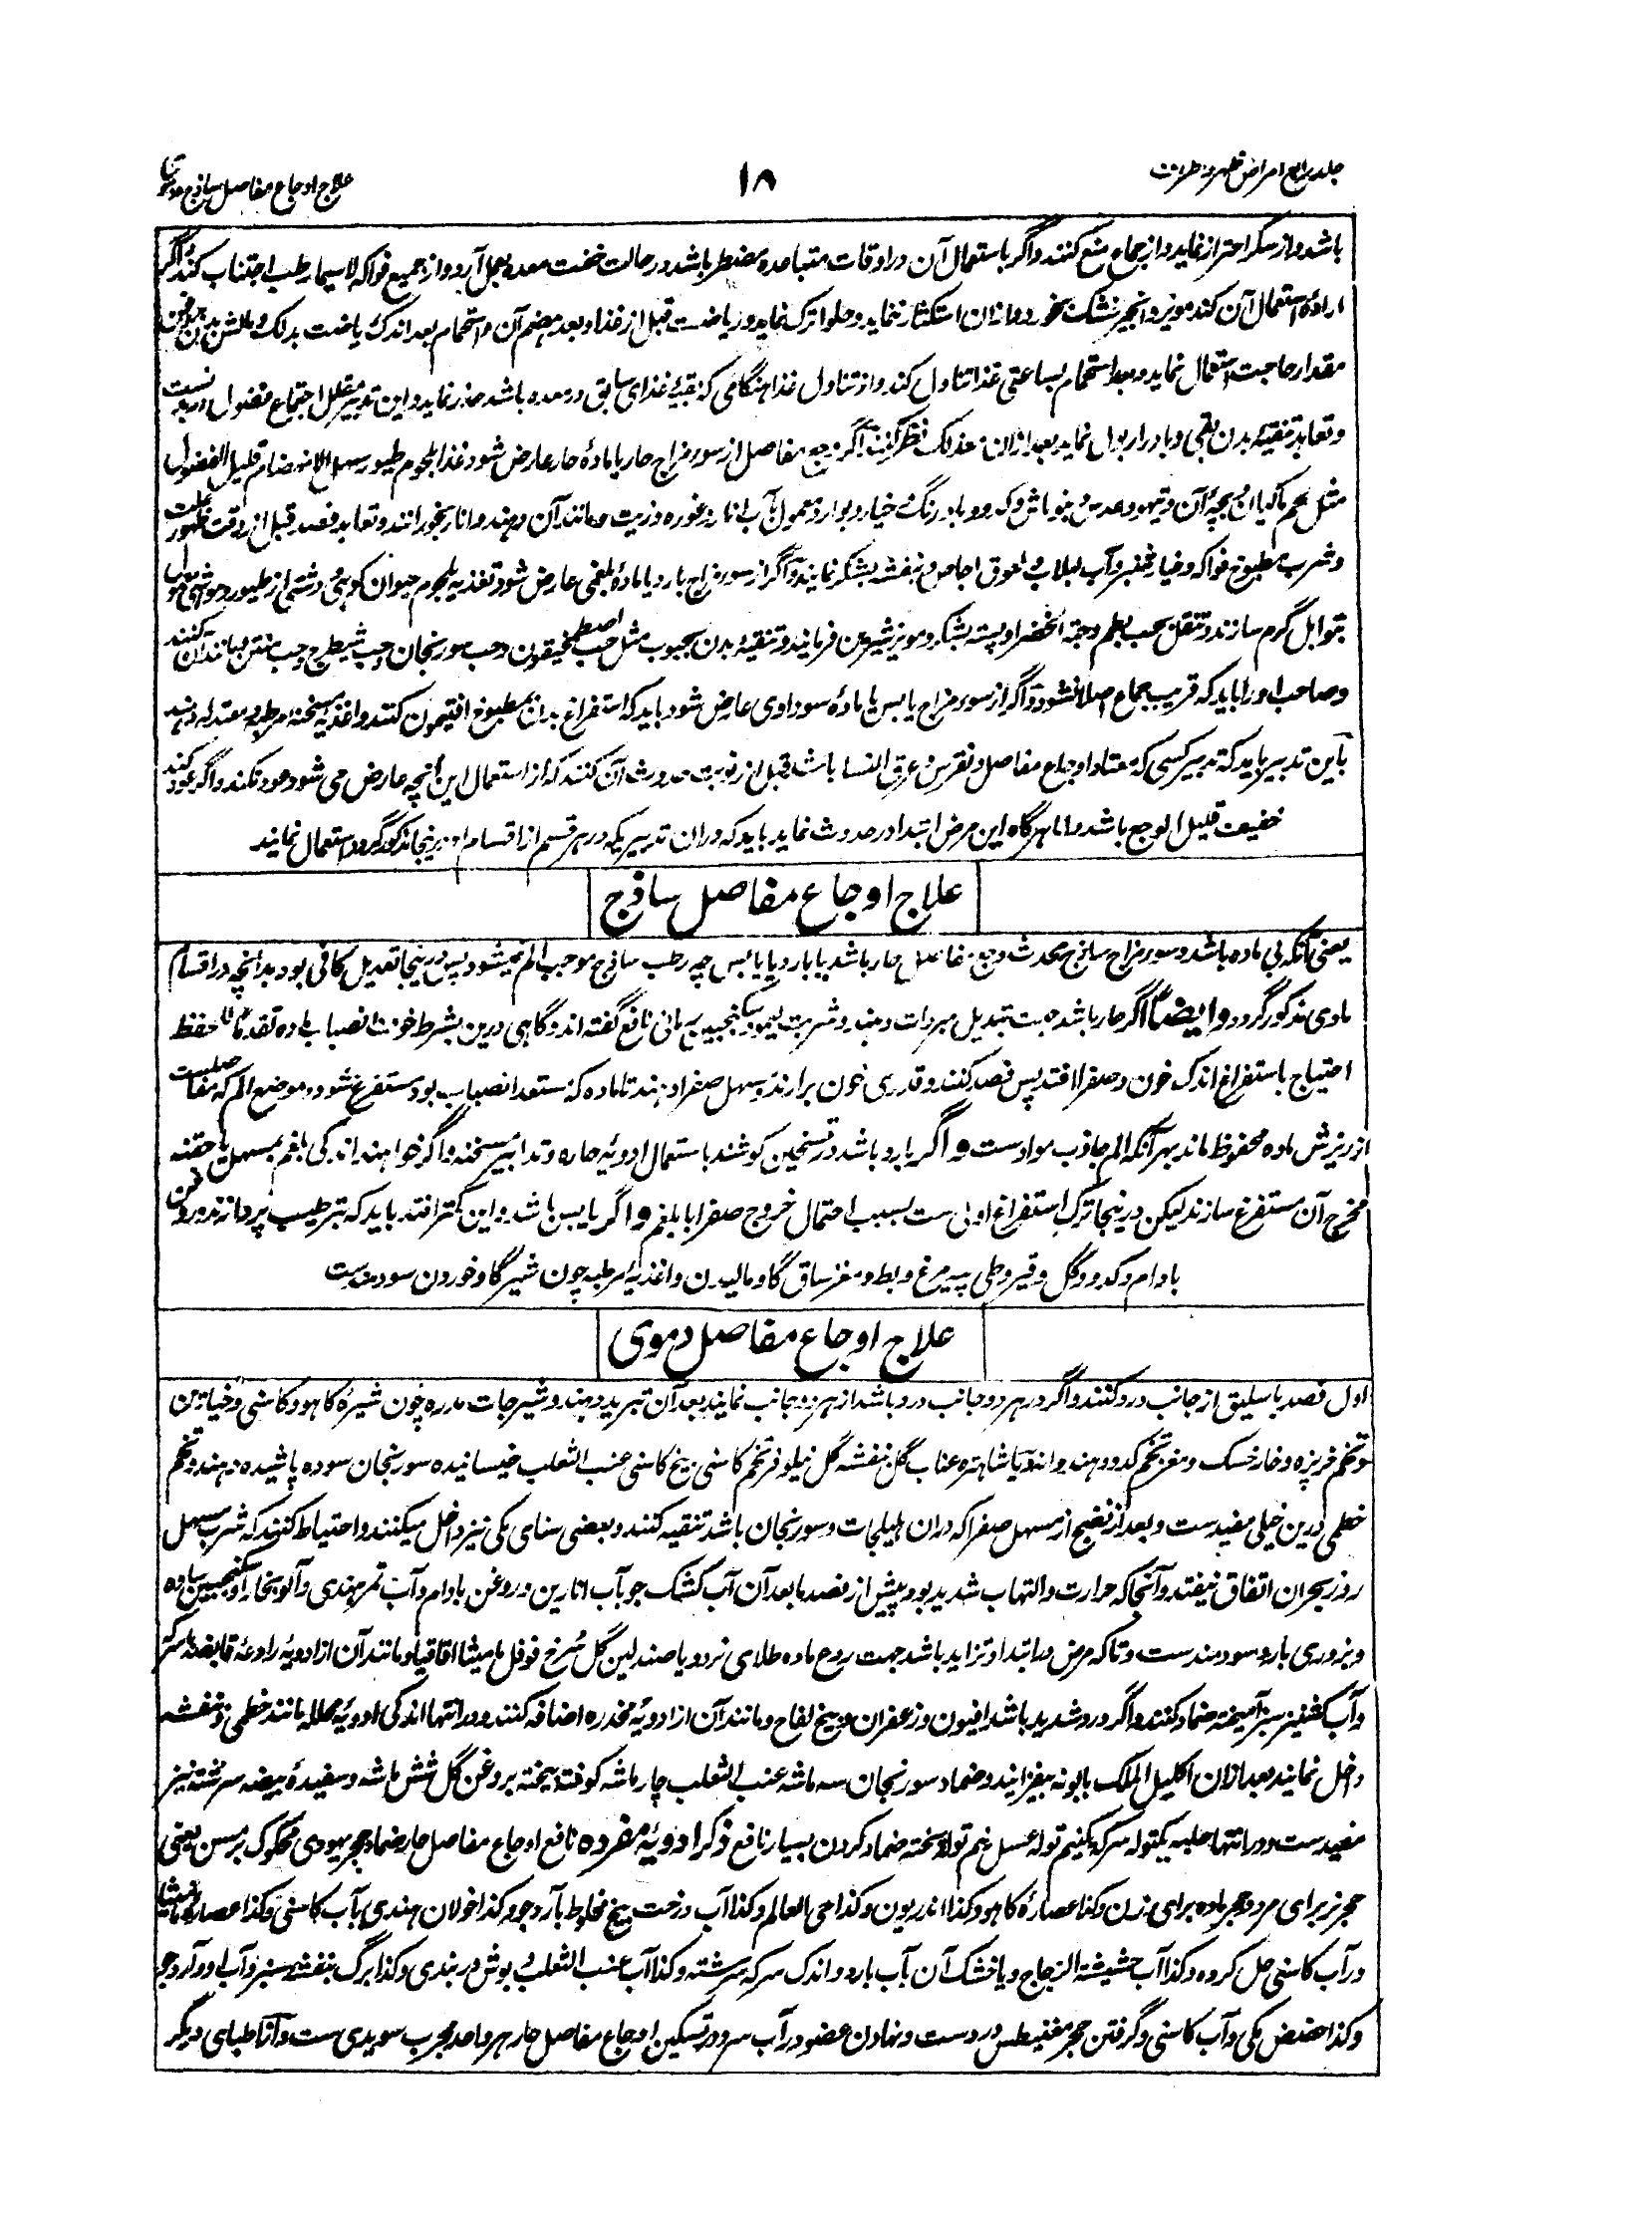 جلد رابع امراض ظهر و طرفت
۱۸
علاج اوجاع مفاصل ساذج و دموی
باشد و از سکر احتراز نماید و از جماع منع کنند و اگر باستعمال آن در اوقات متباعده مضطر باشد در حالت خفت معده بعمل آرد و از جمیع فواکه لاسیما رطب اجتناب کند و اگر
ارادهٔ استعمال آن کند مویز و انجیر خشک بخورد و ازان استکثار ننماید و حلوا ترک نماید و ریاضت قبل از غذا و بعد هضم آن و استحمام بعد اندک ریاضت بدلک و مالش بدن
مقدار حاجت استعمال نماید و بعد استحمام بساعتی غذا تناول کند و از تناول غذا هنگامی که بقیهٔ غذای سابق در معده باشد حذر نماید و این تدبیر مقلل اجتماع فضول در بدنست
و تعاهد تنقیهٔ بدن بقی و بادرار بول نماید بعد ازان مع ذلک نظر کنند اگر وجع مفاصل از سوء مزاج حار یا مادهٔ حار عارض شود غذا بلحوم طیور سهل الانهضام قلیل الفضول
مثل لحم ماکیان و بچهٔ آن و تیهو و عدس و بنو ماش و کدو و بادرنگ و خیار و بوارد معمول بآب انار و غوره و زیت و مانند آن و هندوانه و انار بخورانند و تعاهد فصد قبل از وقت ظهور علت
و شرب مطبوخ فواکه و خیارشنبر و آب لبلاب و لعوق اجاص و بنفشه بشکر نمایند و اگر از سوء مزاج بارد یا مادهٔ بلغمی عارض شود تغذیه بلحوم حیوان کوهی و دشتی از طیور و مواشی
بتوابل گرم سازند و تنقل بحب بطم و حبة الخضرا و پسته بشکر و مویز شیرین فرمایند و تنقیهٔ بدن بحبوب مثل حب اصطمخیقون و حب سورنجان و حب شیطرج و حب منتن و مانند آن کنند
و صاحب او را باید که قریب جماع اصلا نشود و اگر از سوء مزاج یابس یا مادهٔ سوداوی عارض شود باید که استفراغ بدن بمطبوخ افتیمون کنند و اغذیهٔ مسخنه مرطبه معتدله دهند
باین تدبیر باید که تدبیر کسی که معتاد اوجاع مفاصل و نقرس و عرق النسا باشد قبل از نوبت حدوث آن کنند که از استعمال این آنچه عارض می شود عود نکند و اگر عود کند
خفیف قلیل الوجع باشد و اما هرگاه این مرض ابتدا در حدوث نماید باید که دران تدبیریکه در هر قسم از اقسام او درینجا مذکور گردد استعمال نمایند
علاج اوجاع مفاصل ساذج
یعنی آنکه بی ماده باشد و سوء مزاج ساذج محدث وجع مفاصل حار باشد یا بارد یا یابس چه رطب ساذج موجب الم نمیشود پس درینجا تعدیل کافی بود بدانچه در اقسام
مادی مذکور گردد و ایضاً اگر حار باشد جهت تبدیل مبردات دهند و شربت لیمو و سکنجبین رمانی نافع گفته اند و گاهی درین بشرط خوف انصباب ماده تقدماً للحفظ
احتیاج باستفراغ اندک خون و صفرا افتد پس فصد کنند و قدری خون برارند و مسهل صفرا دهند تا ماده که مستعد انصباب بود مستفرغ شود و موضع الم که مفاصلست
از ریزش ماده محفوظ ماند بهر آنکه الم جاذب مواد ست و اگر بارد باشد در تسخین کوشند باستعمال ادویهٔ حاره و تدابیر مسخنه و اگر خواهند اندکی بلغم بمسهل یا حقنه
مخرج آن مستفرغ سازند لیکن درینجا ترک استفراغ اولی ست بسبب احتمال خروج صفرا با بلغم و اگر یابس باشد و این کمتر افتد باید که بترطیب پردازند و روغن
بادام و کدو و گل و قیروطی پیه مرغ و بط و مغز ساق گاو مالیدن و اغذیهٔ مرطبه چون شیر گاو خوردن سودمندست
علاج اوجاع مفاصل دموی
اول فصد باسلیق از جانب درد کنند و اگر در هر دو جانب درد باشد از هر دو جانب نمایند بعد آن تبرید دهند و شیرجات مدره چون شیرهٔ کاهو و کاسنی و خیارین
و تخم خرپزه و خارخسک و مغز تخم کدو و هندوانه و یا شاهتره عناب گل بنفشه گل نیلوفر تخم کاسنی بیخ کاسنی عنب الثعلب خیسانیده سورنجان سوده پاشیده دهند و تخم
خطمی درین خیلی مفید ست و بعد از نضج از مسهل صفرا که دران هلیلجات و سورنجان باشد تنقیه کنند و بعضی سنای مکی نیز داخل میکنند و احتیاط کنند که شرب مسهل
روز بحران اتفاق نیفتد و آنجا که حرارت و التهاب شدید بود پیش از فصد یا بعد آن آب کشک جو بآب انارین و روغن بادام و آب تمر هندی و آلو بخارا و سکنجبین ساده
و بزوری بارد سودمندست و تا که مرض در ابتدا و تزاید باشد جهت ردع ماده طلای نردو یا صندلین گل سرخ فوفل مامیثا اقاقیا و مانند آن از ادویهٔ رادعهٔ قابضه بسرکه
و آب کشنیز سبز آمیخته ضماد کنند و اگر درد شدید باشد افیون و زعفران و بیخ لفاح و مانند آن از ادویهٔ مخدره اضافه کنند و در انتها اندکی ادویهٔ محلله مانند خطمی و بنفشه
داخل نمایند بعد ازان اکلیل الملک بابونه بیفزایند و ضماد سورنجان سه ماشه عنب الثعلب چار ماشه کوفته بیخته بروغن گل شش ماشه و سفیدهٔ بیضه سرشته نیز
مفید ست و در انتها حلبه یکتوله سرکه یکنیم توله عسل نیم توله پخته ضماد کردن بسیار نافع ذکر ادویهٔ مفرده نافع اوجاع مفاصل حار ضماد حجر یهودی محکوک بر مسن یعنی
حجر نر برای مرد و حجر ماده برای زن و کذا عصارهٔ کاهو و کذا اندریون و کذا حی العالم و کذا آب درخت بیخ مخلوط بآرد جو و کذا خولان هندی بآب کاسنی و کذا عصارهٔ مامیثا
در آب کاسنی حل کرده و کذا آب حشیشة الزجاج و یا خشک آن بآب بارد و اندک سرکه سرشته و کذا آب عنب الثعلب و بوش دربندی و کذا برگ بنفشه سبز و آب او و آرد جو
و کذا حضض مکی و آب کاسنی و گرفتن حجر مغنیطس در دست و نهادن عضو در آب سرد در تسکین اوجاع مفاصل حار هر واحد مجرب سویدی ست و آنا اطبای دیگر